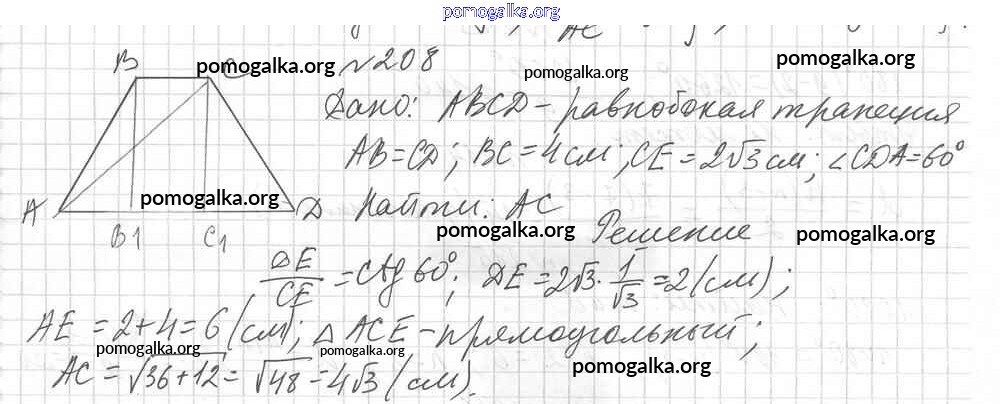 pomogalka.org
B pomogalka.org №208 pomogalka.org pomogalka.org
Дано: ABCD - равнобокая трапеция
AB=CD; BC=4см; CE=2√3см; ∠CDA=60°
A pomogalka.org D Найти: AC
B1 C1 pomogalka.org Решение pomogalka.org
DE/CE = ctg 60°; DE=2√3·1/√3=2(см);
AE=2+4=6(см); △ACE-прямоугольный;
pomogalka.org pomogalka.org pomogalka.org
AC=√36+12=√48=4√3(см).
pomogalka.org